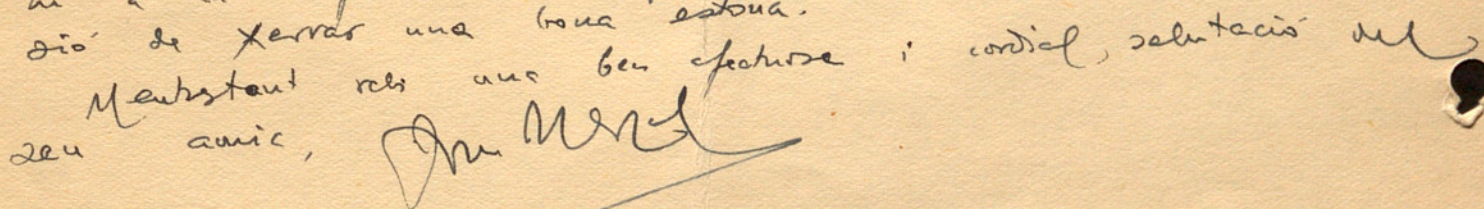 sió de xerrar una bona estona.
Mentrestant rebi una ben afectuosa i cordial, salutació del
seu amic,